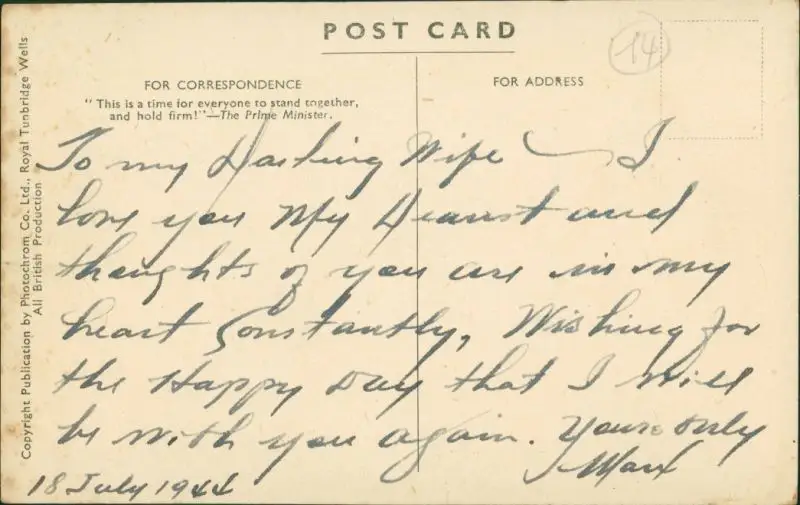 POST CARD
14
FOR CORRESPONDENCE
FOR ADDRESS
"This is a time for everyone to stand together,
and hold firm!"—The Prime Minister.
To my Darling Wife — I
love you My Dearest and
thoughts of you are in my
heart Constantly, Wishing for
the Happy Day that I will
be with you again. Yours only
Max
18 July 1944
Copyright Publication by Photochrom Co. Ltd., Royal Tunbridge Wells
All British Production